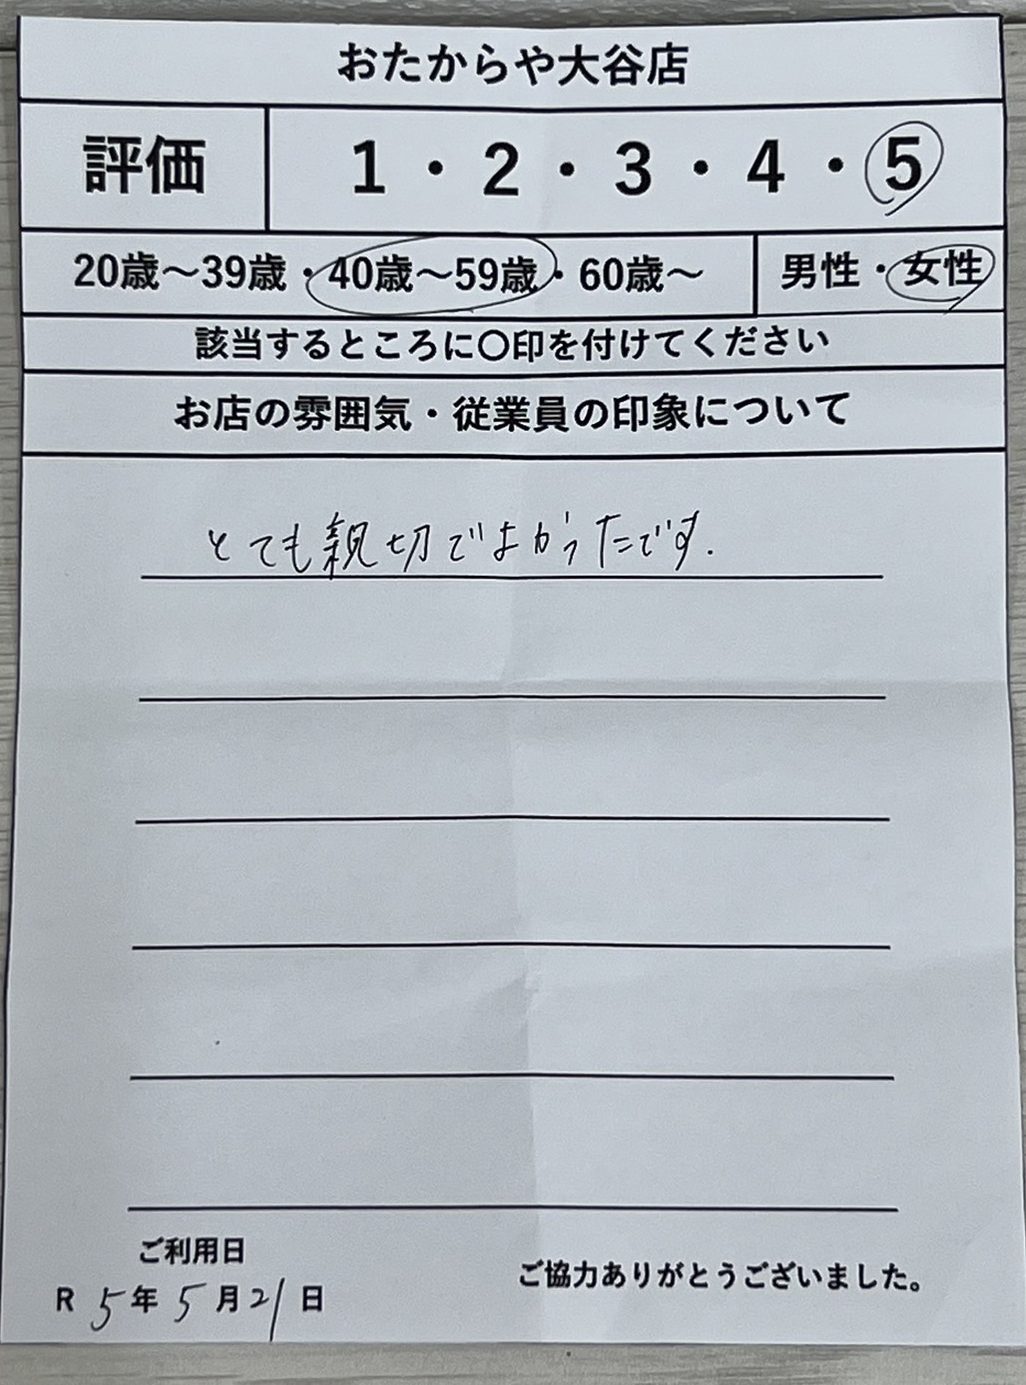 おたからや大谷店
評価 1・2・3・4・5
20歳～39歳・40歳～59歳・60歳～ 男性・女性
該当するところに〇印を付けてください
お店の雰囲気・従業員の印象について
とても親切でよかったです.
ご利用日
ご協力ありがとうございました。
R 5年 5月21日